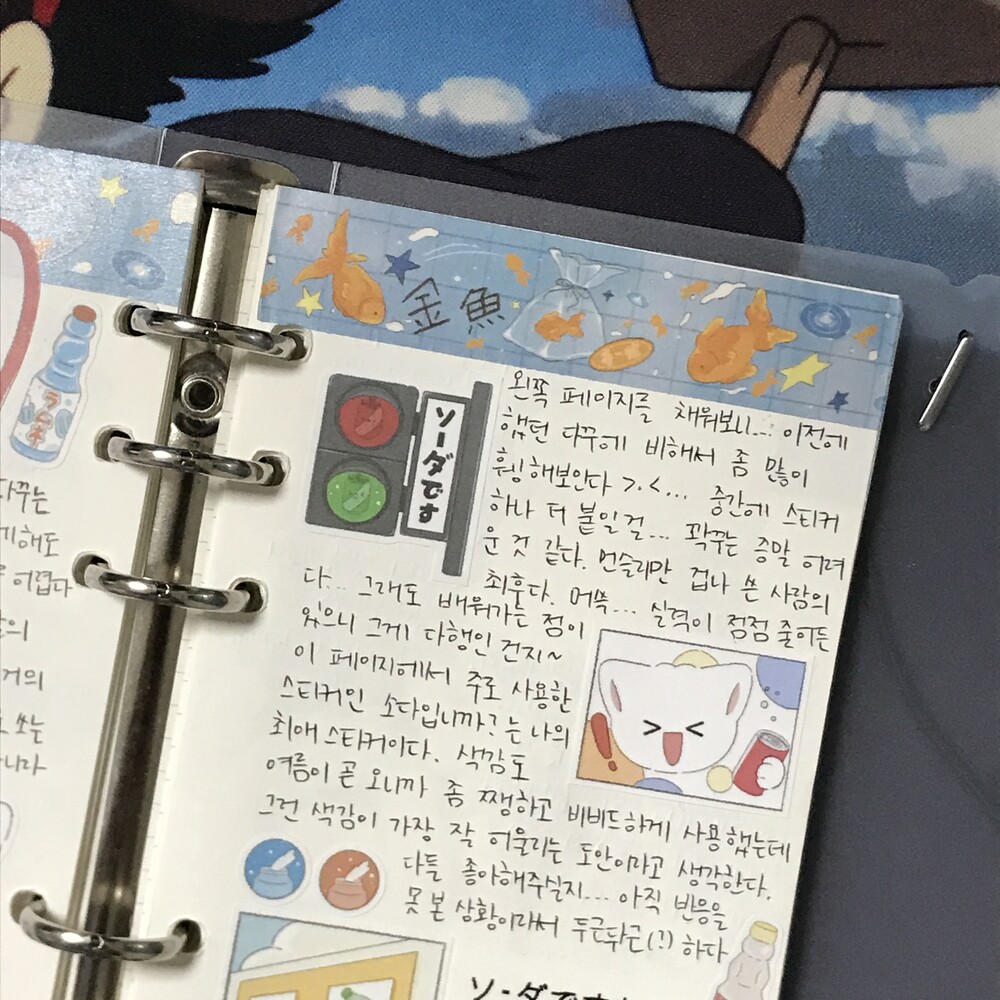 金魚
ラムネ
ソーダです
왼쪽 페이지를 채워보니... 이전에
했던 다꾸에 비해서 좀 많이
휑해보인다 >.<... 중간에 스티커
하나 더 붙일걸... 꽉꾸는 증말 어려
운 것 같다. 먼슬리만 겁나 쓴 사람의
최후다. 머쓱... 실력이 점점 줄어든
다... 그래도 배워가는 점이
있으니 그게 다행인 건지~
이 페이지에서 주로 사용한
스티커인 소다입니까?는 나의
최애 스티커이다. 색감도
여름이 곧 오니까 좀 쨍하고 비비드하게 사용했는데
그런 색감이 가장 잘 어울리는 도안이라고 생각한다.
다들 좋아해주실지... 아직 반응을
못 본 상황이라서 두근두근(?) 하다
다꾸는
게해도
어렵다
거의
쓰는
니다